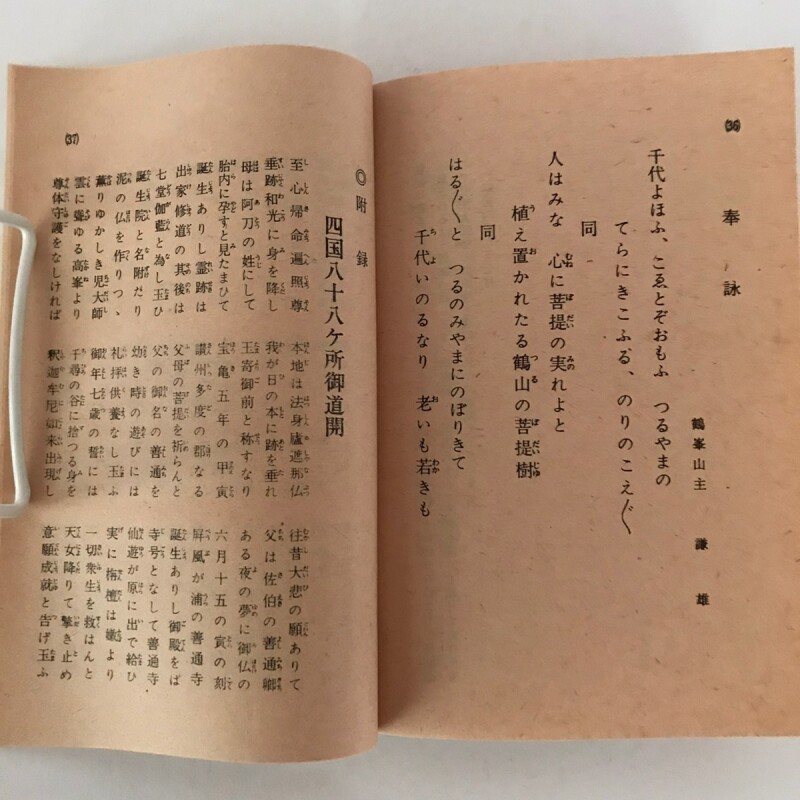 (36)
奉詠
鶴峯山主 謙雄
千代よほふ、こゑとぞおもふ つるやまの
てらにきこふる、のりのこえ〴〵
同
人はみな 心に菩提の実れよと
植え置かれたる鶴山の菩提樹
同
はる〴〵と つるのみやまにのぼりきて
千代いのるなり 老いも若きも
(37)
◎附録
四国八十八ケ所御道開
至心帰命遍照尊 本地は法身廬遮那仏 往昔大悲の願ありて
垂跡和光に身を降し 我が日の本に跡を垂れ 父は佐伯の善通卿
母は阿刀の姓にして 玉寄御前と称すなり ある夜の夢に御仏の
胎内に孕すと見たまひて 宝亀五年の甲寅 六月十五の寅の刻
誕生ありし霊跡は 讃州多度の郡なる 屏風が浦の善通寺
出家修道の其後は 父母の菩提を祈らんと 誕生ありし御殿をば
七堂伽藍と為し玉ひ 父の御名の善通を 寺号となして善通寺
誕生院と名附だり 幼き時の遊びには 仙遊が原に出で給ひ
泥の仏を作りつゝ 礼拝供養なし玉ふ 実に栴檀は嫩より
薫りゆかしき児大師 御年七歳の誓には 一切衆生を救はんと
雲に聳ゆる高峯より 千尋の谷に捨つる身を 天女降りて擎き止め
尊体守護をなしければ 釈迦牟尼如来出現し 意願成就と告げ玉ふ